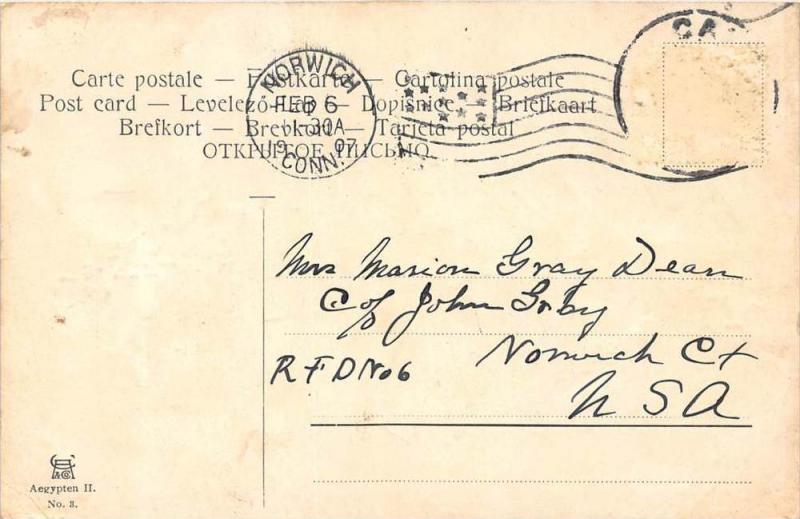 CA
Carte postale — Postkarte — Cartolina postale
Post card — Levelező-Lap — Dopisnice — Briefkaart
Brefkort — Brevkort — Tarjeta postal
ОТКРЫТОЕ ПИСЬМО
NORWICH
FEB 6
11-30A
19 07
CONN.
Mrs Marion Gray Dean
C/o John Gray
Norwich Ct
R F D No 6
U S A
& Co
Aegypten II.
No. 3.